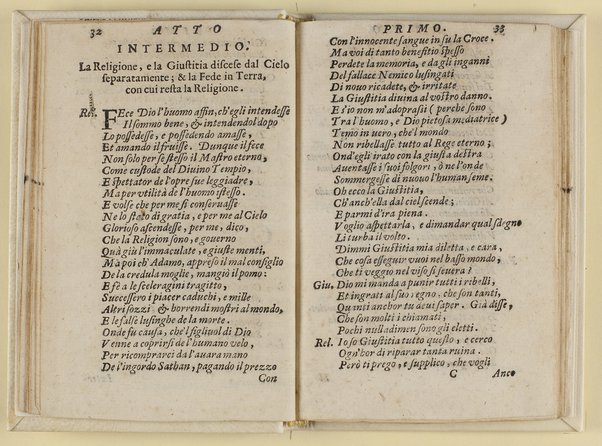 32 ATTO
INTERMEDIO.
La Religione, e la Giustitia discese dal Cielo
separatamente; & la Fede in Terra,
con cui resta la Religione.
Re. FEce Dio l'huomo affin, ch'egli intendesse
Il sommo bene, & intendendol dopo
Lo possedesse, e possedendo amasse,
Et amando il fruisse. Dunque il fece
Non solo per se stesso il Mastro eterno,
Come custode del Diuino Tempio,
E spettator de l'opre sue leggiadre,
Ma per vtilità de l'huomo istesso.
E volse che per me si conseruasse
Ne lo stato di gratia, e per me al Cielo
Glorioso ascendesse, per me, dico,
Che la Religion sono, e gouerno
Quà giù l'immaculate, e giuste menti,
Mà poi ch'Adamo, appreso il mal consiglio
De la credula moglie, mangiò il pomo:
E fè a le sceleragini tragitto,
Successero i piacer caduchi, e mille
Altri sozzi & horrendi mostri al mondo,
E le false lusinghe de la morte.
Onde fu causa, che'l figliuol di Dio
Venne a coprirsi de l'humano velo,
Per ricomprarci da l'auara mano
De l'ingordo Sathan, pagando il prezzo
Con
PRIMO. 33
Con l'innocente sangue in su la Croce.
Ma voi di tanto benefitio spesso
Perdete la memoria, e da gli inganni
Del fallace Nemico lusingati
Di nouo ricadete, & irritate
La Giustitia diuina al vostro danno.
E s'io non m'adoprassi (perche sono
Tra l'huomo, e Dio pietosa mediatrice)
Temo in uero, che'l mondo
Non ribellasse tutto al Rege eterno;
Ond'egli irato con la giusta destra
Auentasse i suoi folgori, ò ne l'onde
Sommergesse di nuouo l'human seme.
Oh ecco la Giustitia,
Ch'anch'ella dal ciel scende;
E parmi d'ira piena.
Voglio aspettarla, e dimandar qual sdegno
Li turba il volto.
Dimmi Giustitia mia diletta, e cara,
Che cosa esseguir vuoi nel basso mondo,
Che ti veggio nel viso si seuera?
Giu. Dio mi manda a punir tutti i ribelli,
Et ingrati al suo regno, che son tanti,
Quanti anchor tu deui saper. Già disse,
Che son molti i chiamati,
Pochi nulladimen son gli eletti.
Rel. Io so Giustitia tutto questo, e cerco
Ogn'hor di riparar tanta ruina.
Però ti prego, e supplico, che vogli
C Anco